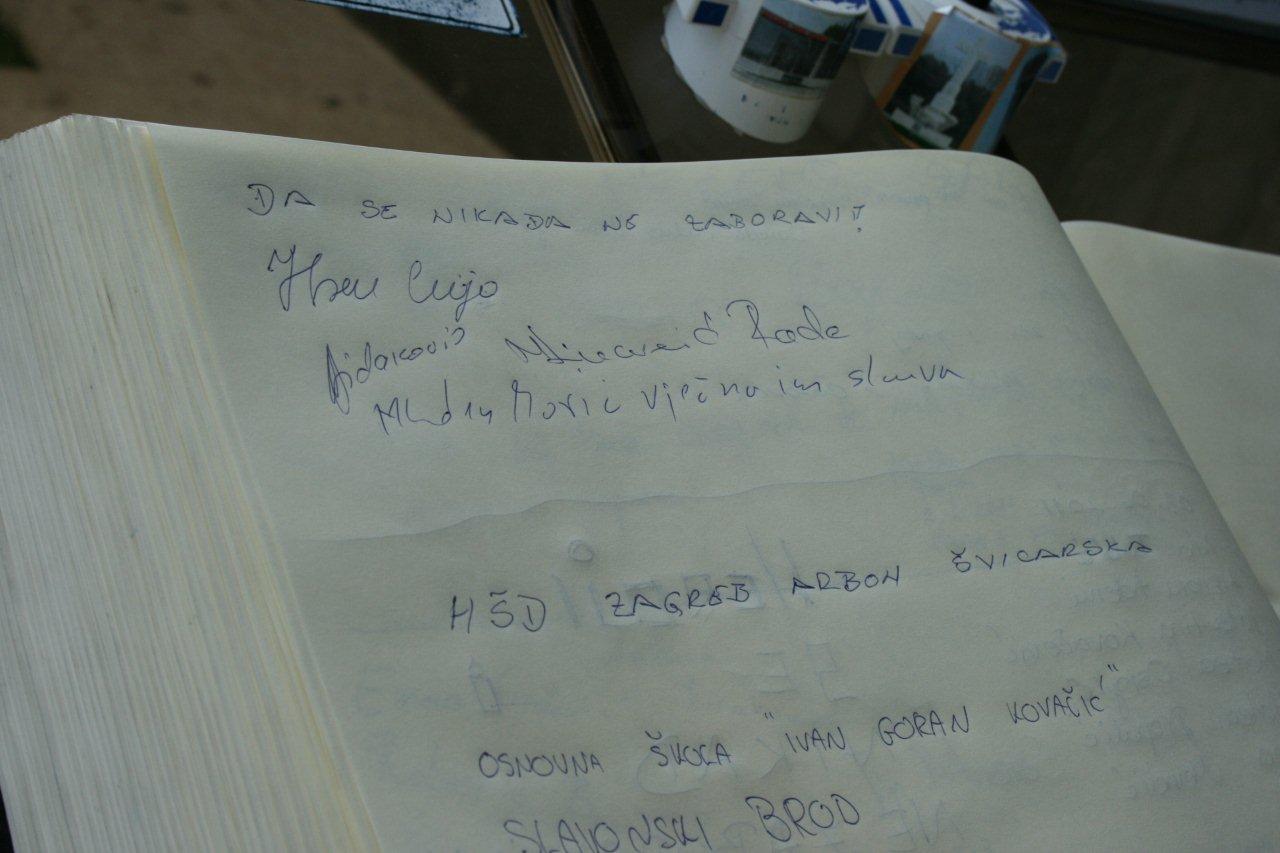 DA SE NIKADA NE ZABORAVI!
Mijo
Rade
Mladen Morić vječna im slava
HŠD ZAGREB ARBON ŠVICARSKA
OSNOVNA ŠKOLA "IVAN GORAN KOVAČIĆ"
SLAVONSKI BROD